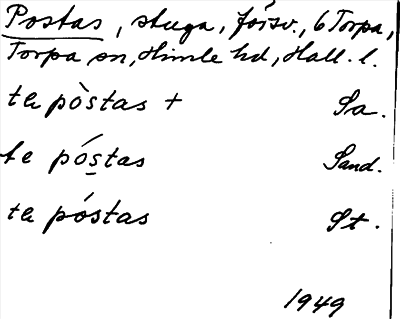 Postas, stuga, försv., 6 Torpa,
Torpa sn, Himle hd, Hall. l.
te pòstas + Sa.
te pós̲tas Sand.
te póstas St.
1949